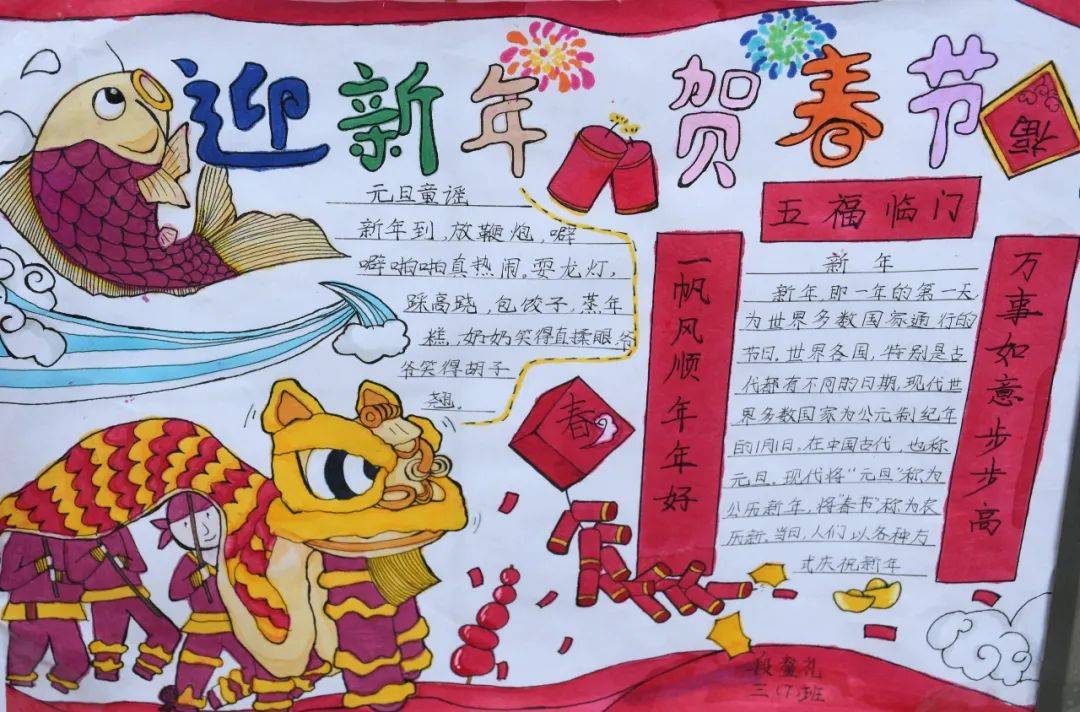 迎新年 贺春节
福
元旦童谣
新年到,放鞭炮,噼
噼啪啪真热闹。耍龙灯,
踩高跷,包饺子,蒸年
糕,奶奶笑得直揉眼,爷
爷笑得胡子
翘。
春
五福临门
一帆风顺年年好
万事如意步步高
新年
新年,即一年的第一天,
为世界多数国家通行的
节日。世界各国,特别是古
代都有不同的日期,现代世
界多数国家为公元制纪年
的1月1日。在中国古代,也称
元旦。现代将“元旦”称为
公历新年,将“春节”称为农
历新。当日,人们以各种方
式庆祝新年
三(7)班